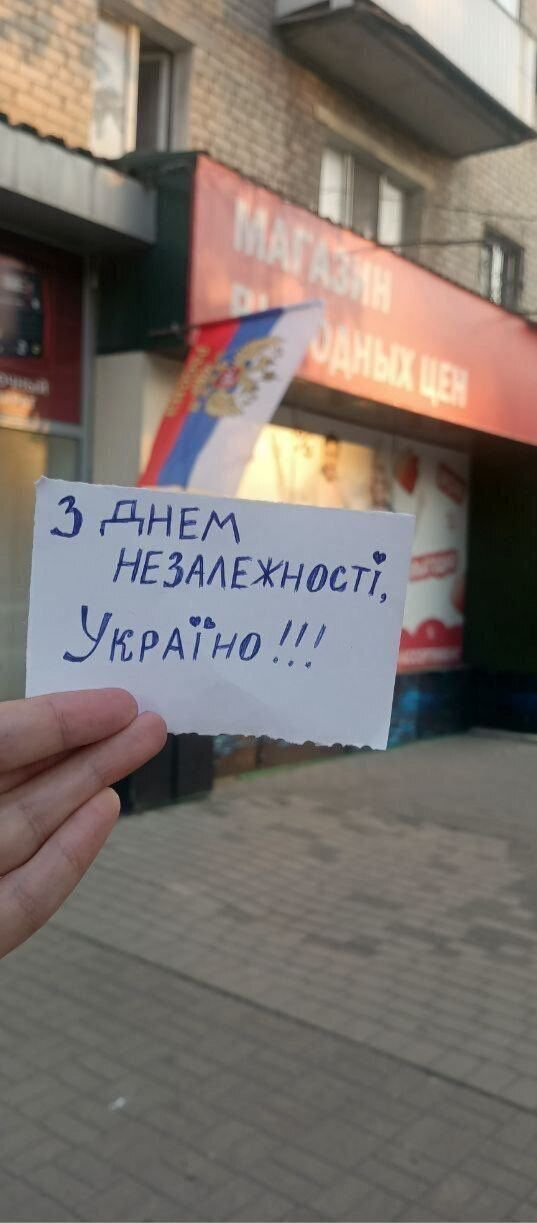 МАГАЗИН
ВЫГОДНЫХ ЦЕН
З ДНЕМ
НЕЗАЛЕЖНОСТІ,
УКРАЇНО!!!